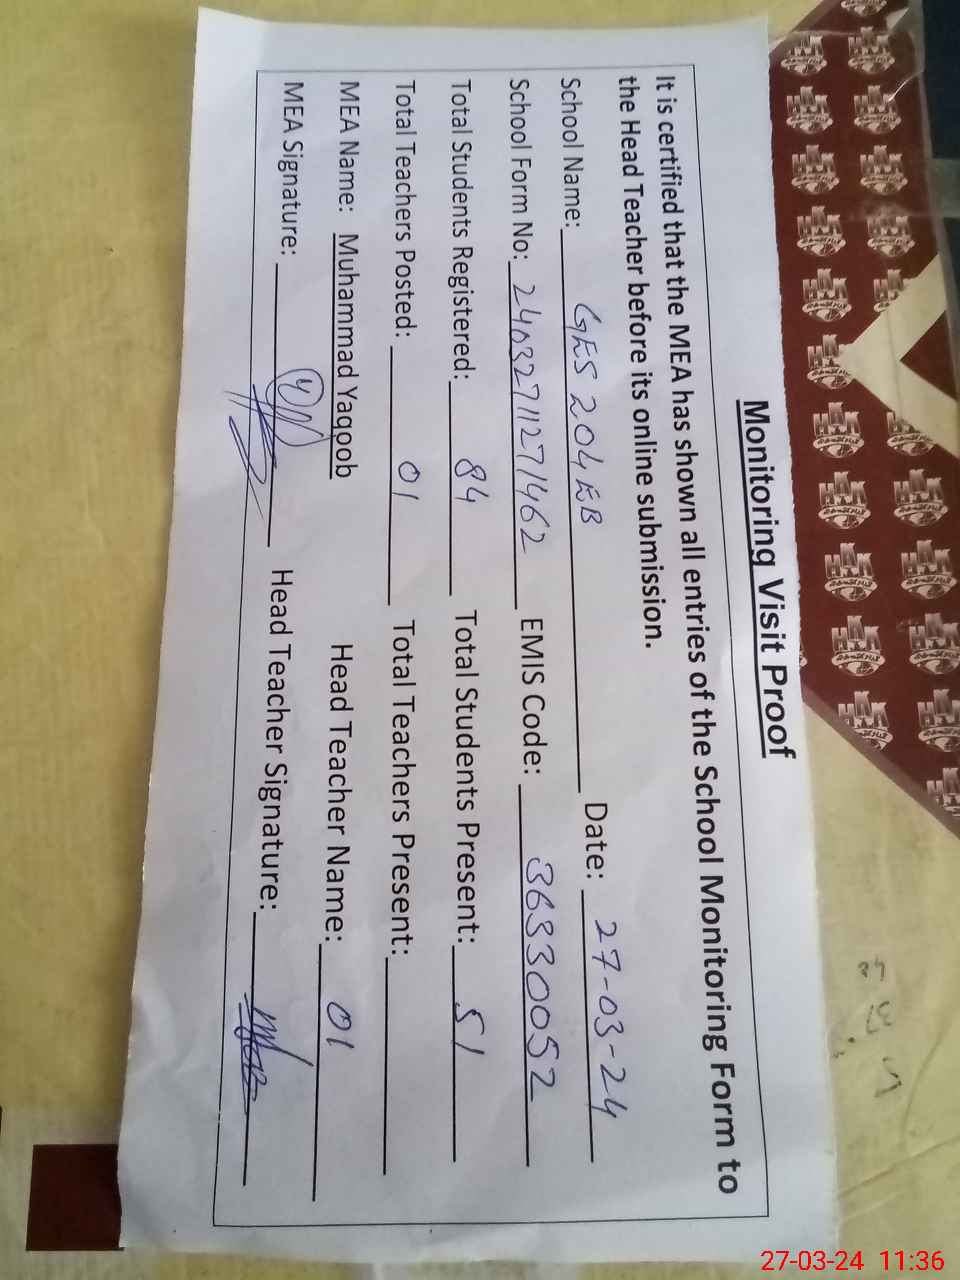 Monitoring Visit Proof
It is certified that the MEA has shown all entries of the School Monitoring Form to
the Head Teacher before its online submission.
School Name: GES 204 EB Date: 27-03-24
School Form No: 24032711271462 EMIS Code: 36330052
Total Students Registered: 84 Total Students Present: 51
Total Teachers Posted: 01 Total Teachers Present:
MEA Name: Muhammad Yaqoob Head Teacher Name: 01
MEA Signature: Head Teacher Signature:
27-03-24 11:36